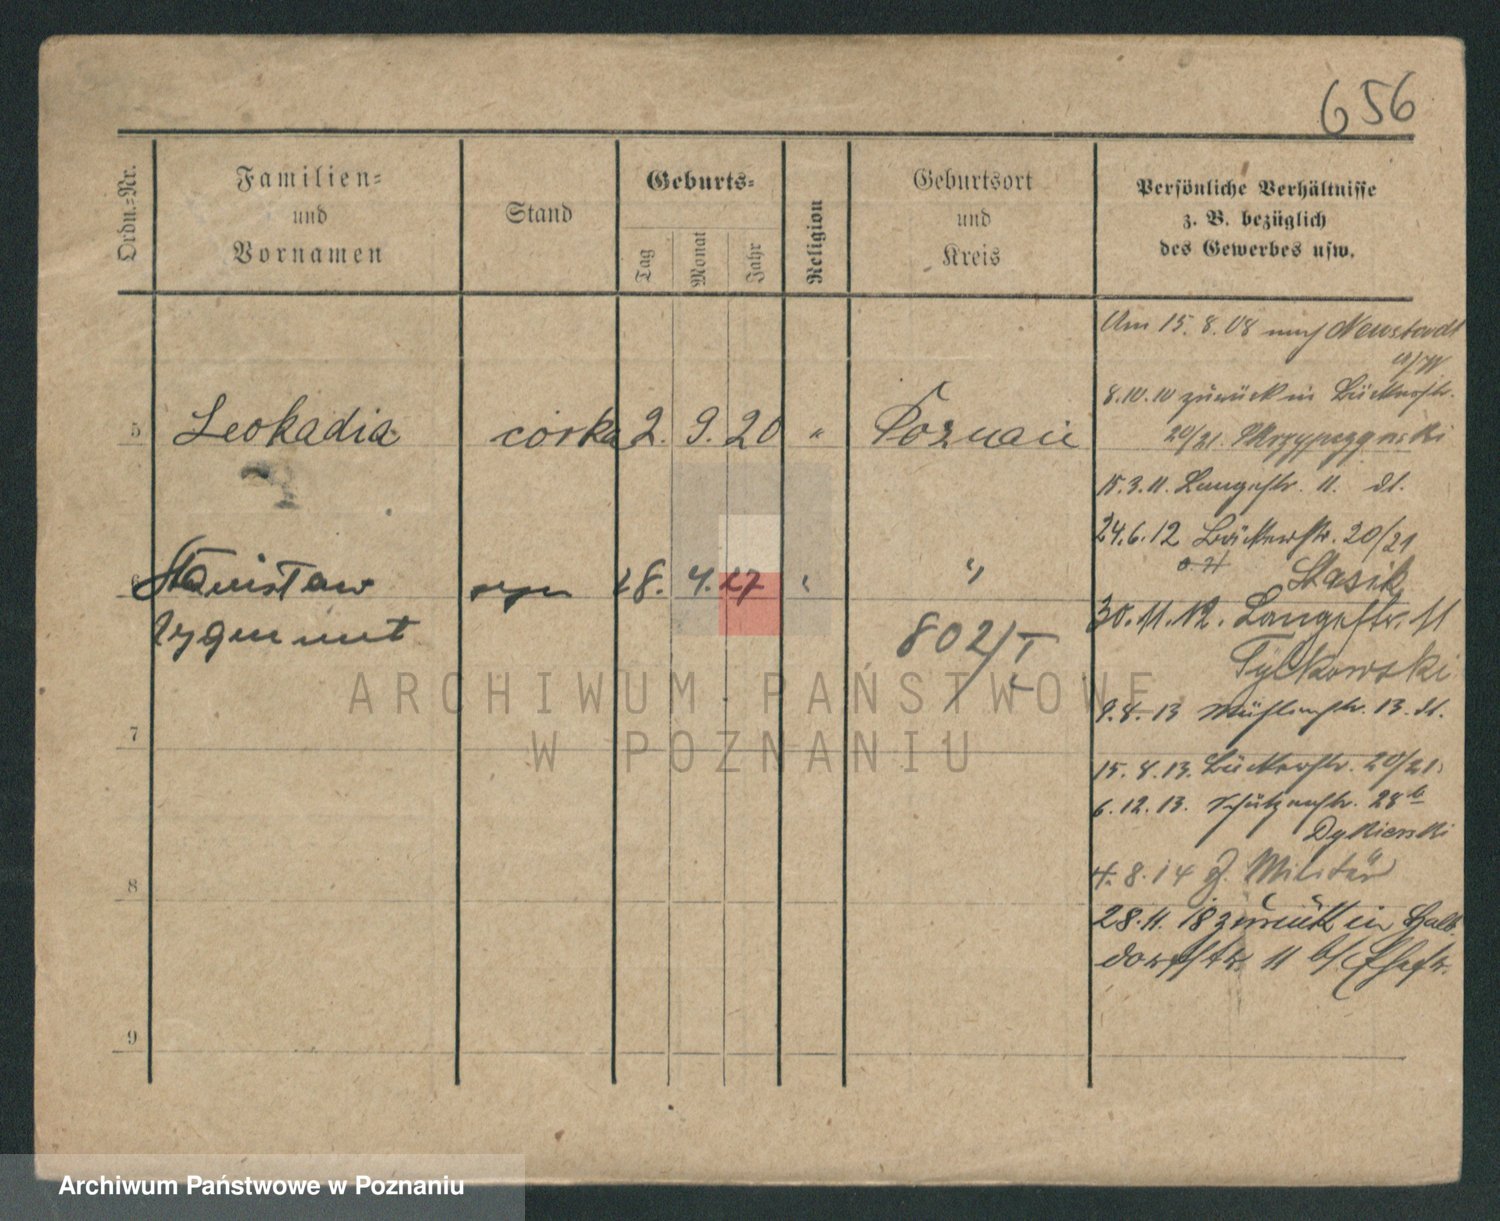 656
Ordn.-Nr.
Familien-
und
Vornamen
Stand
Geburts-
Tag
Monat
Jahr
Religion
Geburtsort
und
Kreis
Persönliche Verhältnisse
z. B. bezüglich
des Gewerbes usw.
5 Leokadia córka 2. 9. 20 " Poznań
6 Stanisław syn 28. 4. 27 " "
Zygmunt
802/I
7
8
9
Am 15. 8. 08 nach Neustadt
a/W
8.10.10 zurück in Bäckerstr.
20/21.
15.3.11. Langestr. 11. dt.
24.6.12 Bäckerstr. 20/21
Stasik
30.11.12. Langestr. 11
Tylkowski
9.8.13 Mühlenstr. 13. dt.
15.8.13. Bäckerstr. 20/21.
6.12.13. Schützenstr. 28b
Dykierski
4.8.14 z. Militär
28.11.18 zurück in Halb-
dorfstr. 11 b/Ehefr.
ARCHIWUM PAŃSTWOWE
W POZNANIU
Archiwum Państwowe w Poznaniu